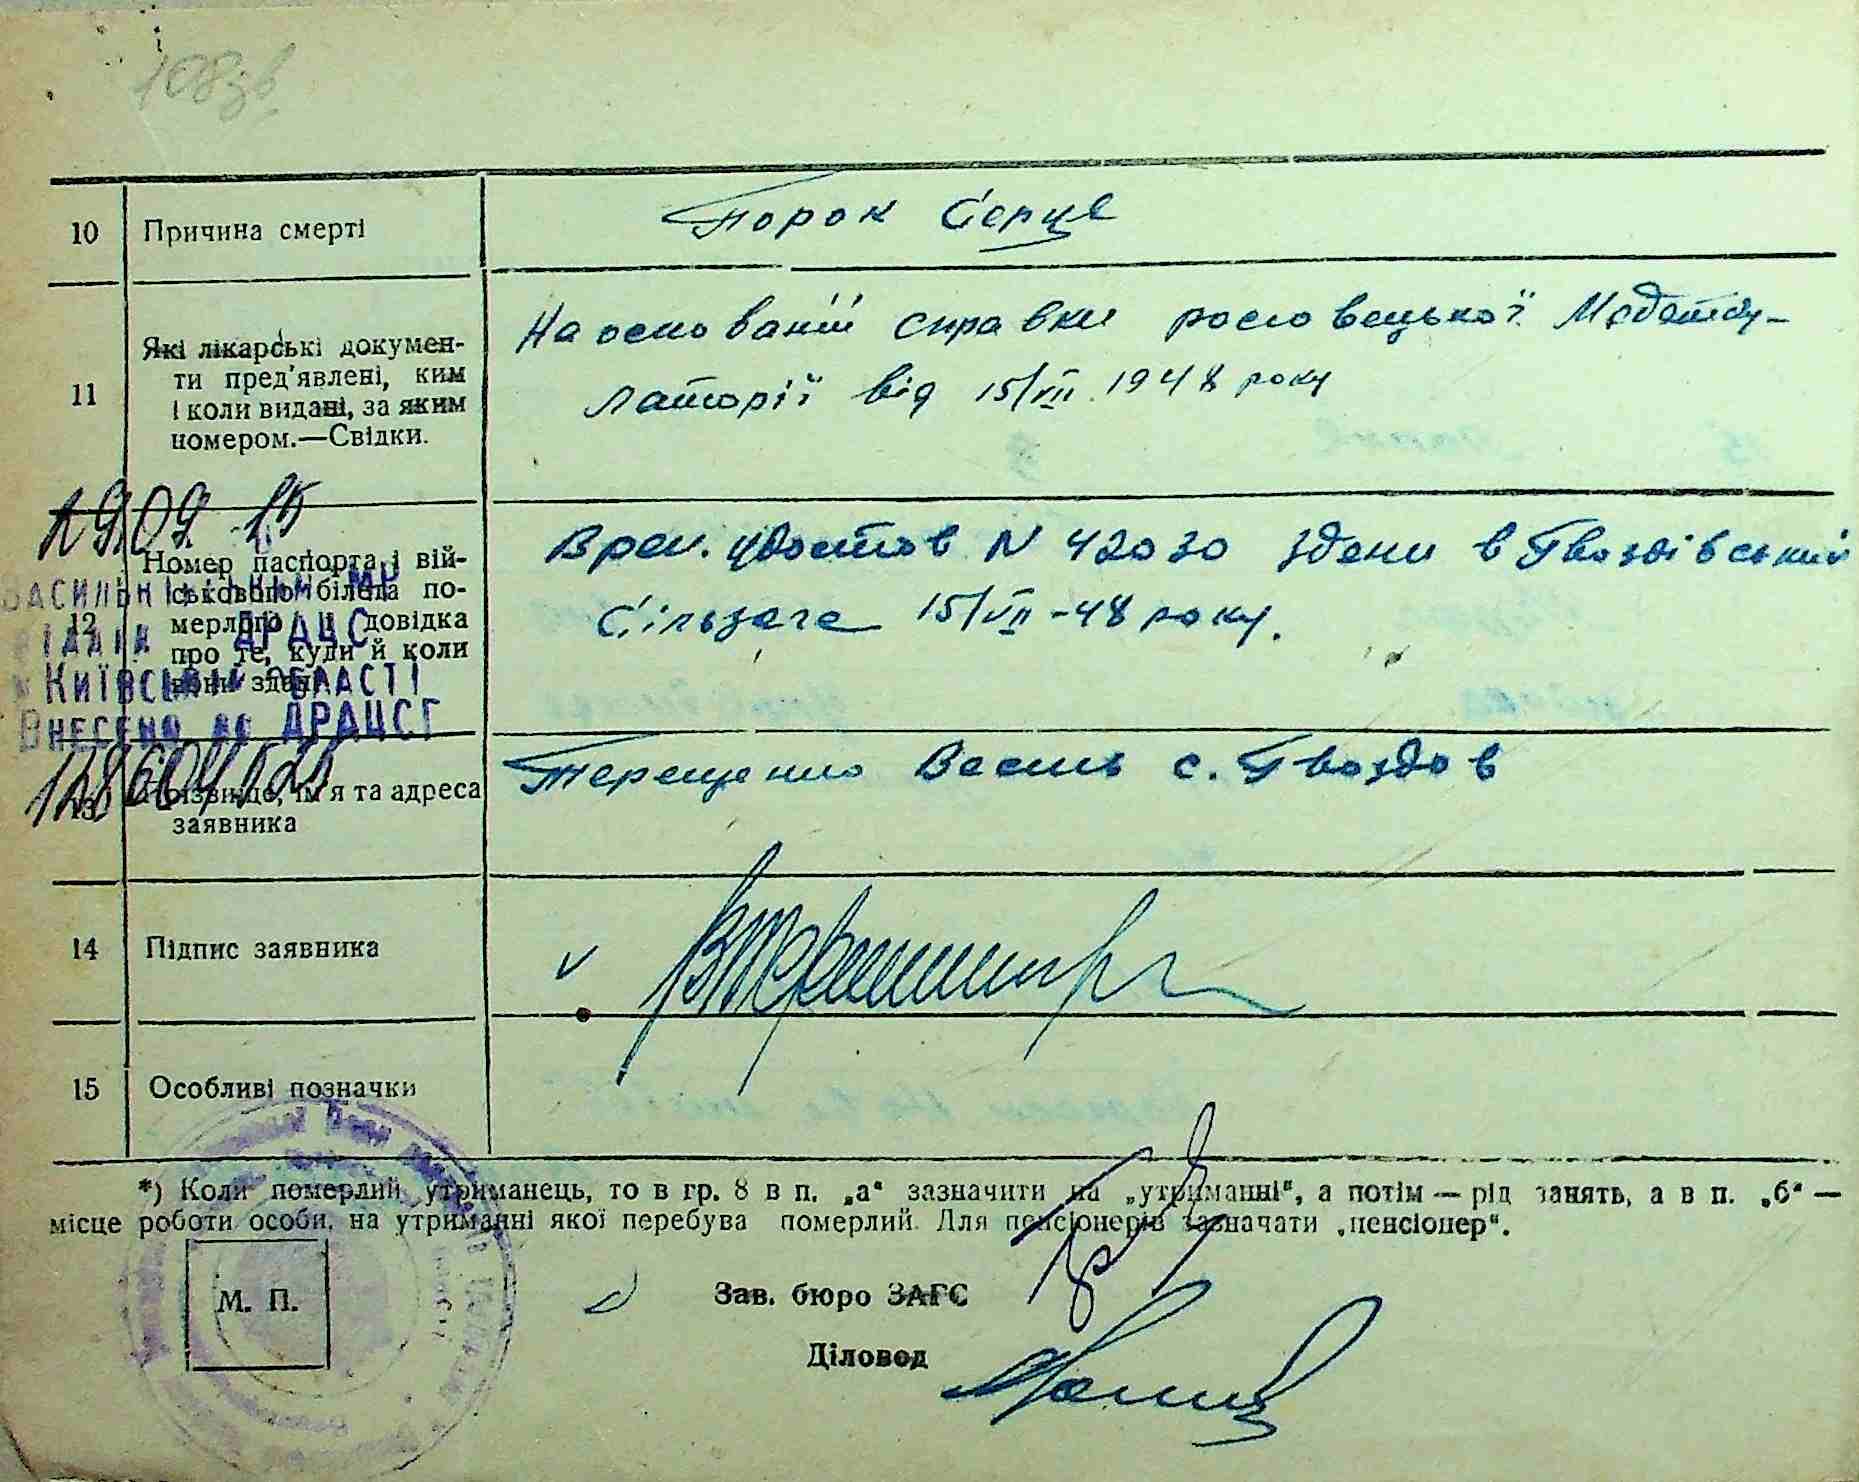 108зв.
10 Причина смерті Порок Серце
11 Які лікарські докумен-
ти пред'явлені, ким
і коли видані, за яким
номером.—Свідки.
На основаній справки рословецької Медамбу-
латорії від 15/VII 1948 року
19.09 15
12 Номер паспорта і вій-
ськового білета по-
мерлого і довідка
про те, куди й коли
вони здані
Врем. удостов N 42030 здени в Гвоздівський
Сільраге 15/VII-48 року.
ВАСИЛЬКІВСЬКИЙ МР
ВІДДІЛ ДРАЦС
КИЇВСЬКІЙ ОБЛАСТІ
ВНЕСЕНО ДО ДРАЦСГ
13 Прізвище, ім'я та адреса
заявника
Терещенко Весиль с. Гвоздов
14 Підпис заявника
15 Особливі позначки
*) Коли померлий утриманець, то в гр. 8 в п. „а“ зазначити на „утриманні“, а потім — рід занять, а в п. „б“ —
місце роботи особи, на утриманні якої перебува померлий. Для пенсіонерів зазначати „пенсіонер“.
М. П.
Зав. бюро ЗАГС
Діловод